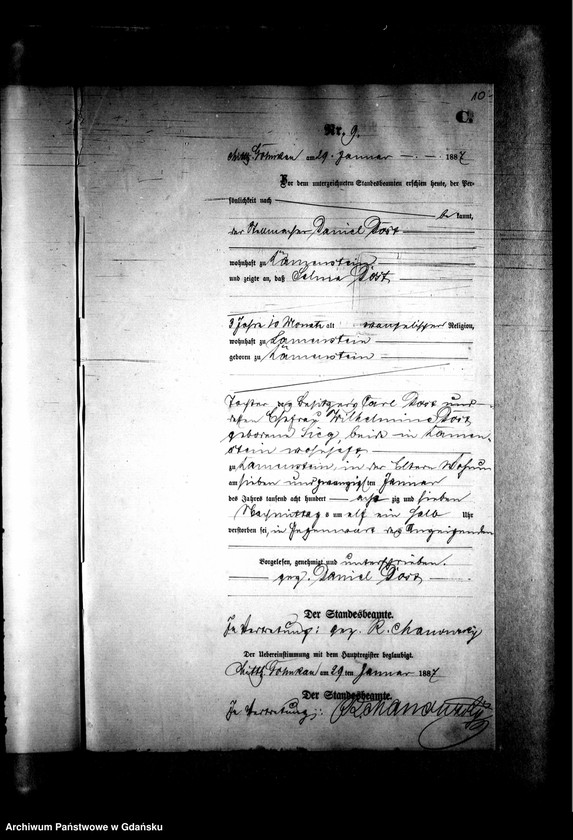 10
C.
Nr. 9.
Mittel Golmkau am 29. Januar 1887
Vor dem unterzeichneten Standesbeamten erschien heute, der Per-
sönlichkeit nach
be kannt,
der Stellmacher Daniel Dost
wohnhaft zu
und zeigte an, daß Selma Dost
3 Jahre 10 Monate alt evangelischer Religion,
wohnhaft zu Lamenstein
geboren zu Lamenstein
Tochter des Besitzers Carl Dost und
dessen Ehefrau Wilhelmine Dost,
geborene beide in Lamen-
stein wohnhaft,
zu Lamenstein, in der Eltern Wohnun
am sieben und zwanzigsten Januar
des Jahres tausend acht hundert acht zig und sieben
Nachmittags um elf ein halb Uhr
verstorben sei, in Gegenwart des Anzeigenden
Vorgelesen, genehmigt und unterschrieben.
gez. Daniel Dost
Der Standesbeamte.
In Vertretung: gez. R.
Der Uebereinstimmung mit dem Hauptregister beglaubigt.
Mittel Golmkau am 29 ten Januar 1887
Der Standesbeamte.
In Vertretung:
Archiwum Państwowe w Gdańsku